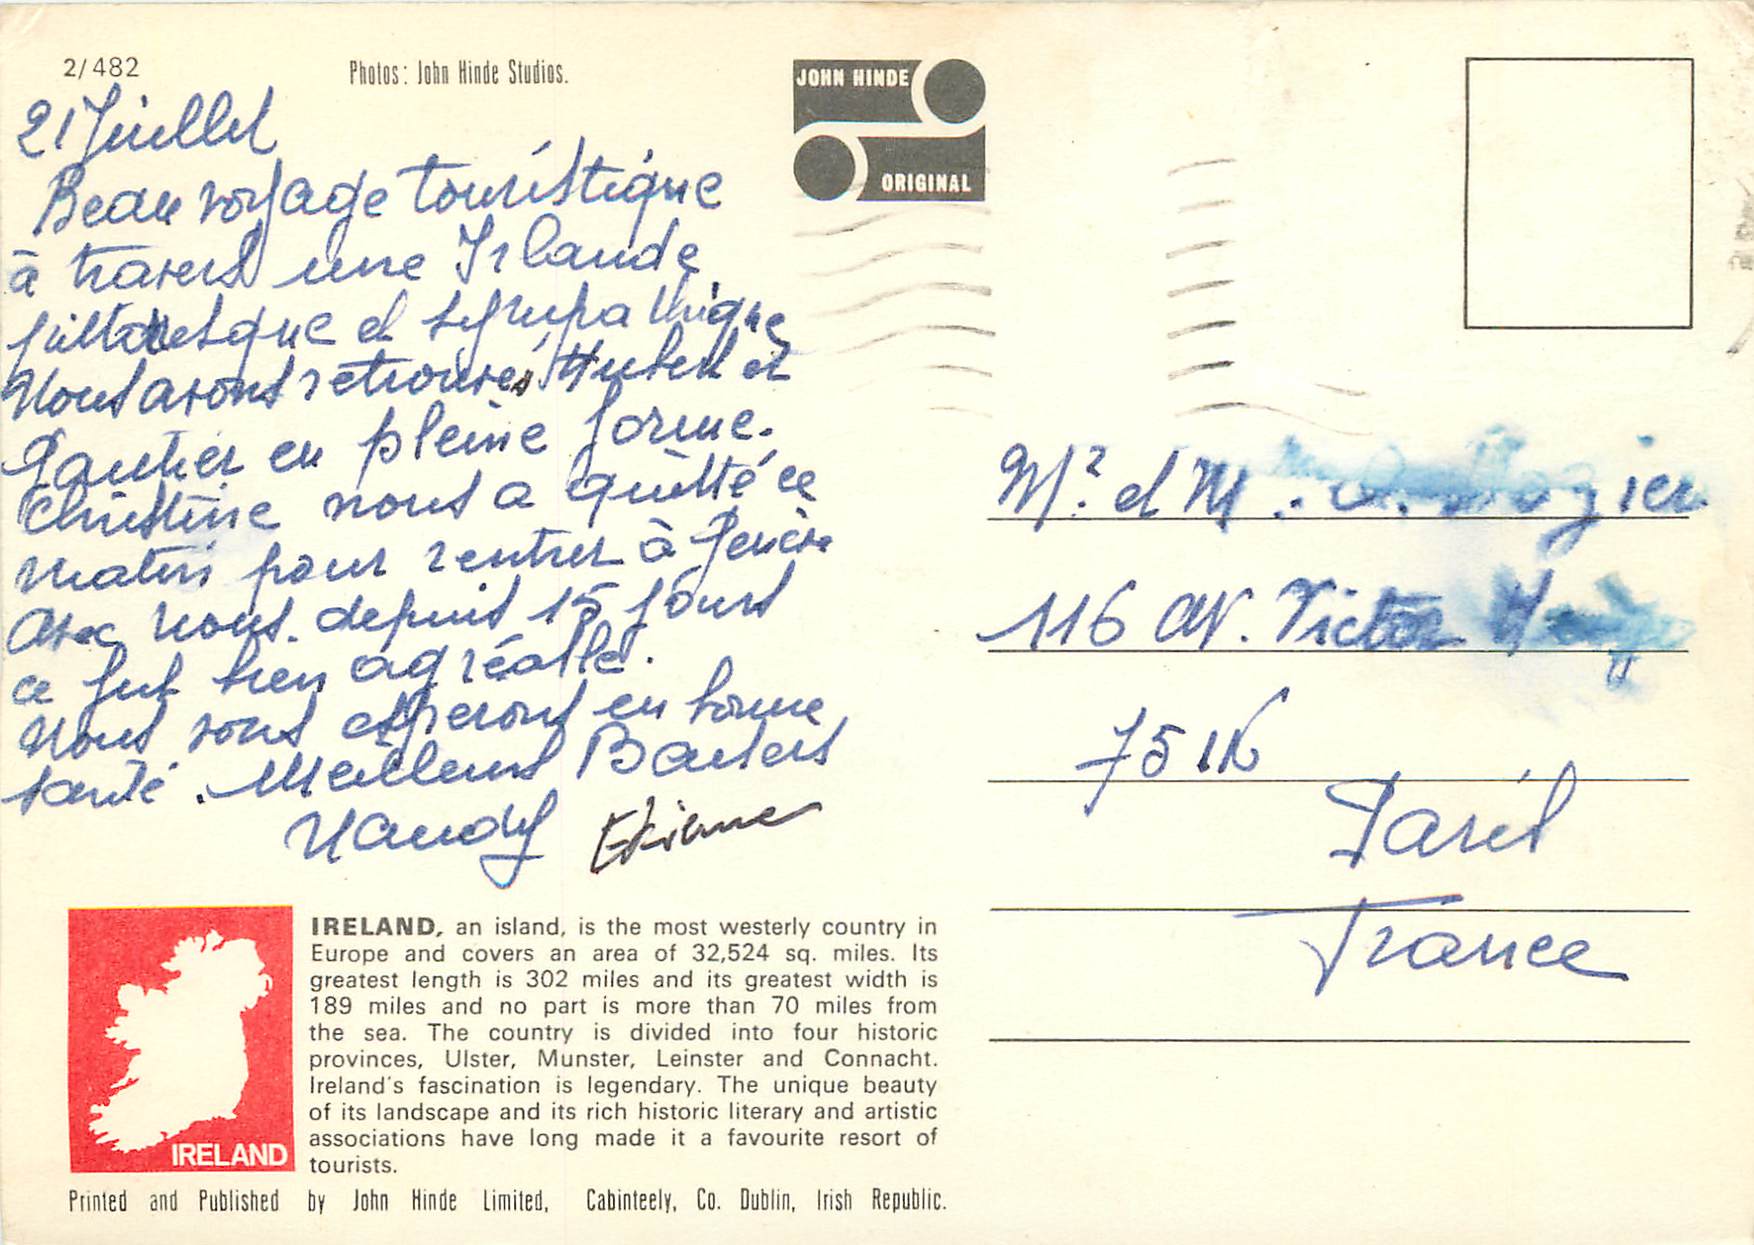 2/482
Photos: John Hinde Studios.
JOHN HINDE
ORIGINAL
21 Juillet
Beau voyage touristique
à travers une Irlande
pittoresque et sympathique
Nous avons retrouvés Hubert et
Gautier en pleine forme.
Christine nous a quitté ce
matin pour rentrer à Genève
Avec nous depuis 15 jours
ce fut bien agréable.
Nous vous espérons en bonne
santé. Meilleurs Baisers
Etienne
Mr et M
116 av. Victor Hugo
75116
Paris
France
IRELAND, an island, is the most westerly country in
Europe and covers an area of 32,524 sq. miles. Its
greatest length is 302 miles and its greatest width is
189 miles and no part is more than 70 miles from
the sea. The country is divided into four historic
provinces, Ulster, Munster, Leinster and Connacht.
Ireland's fascination is legendary. The unique beauty
of its landscape and its rich historic literary and artistic
associations have long made it a favourite resort of
tourists.
IRELAND
Printed and Published by John Hinde Limited, Cabinteely, Co. Dublin, Irish Republic.